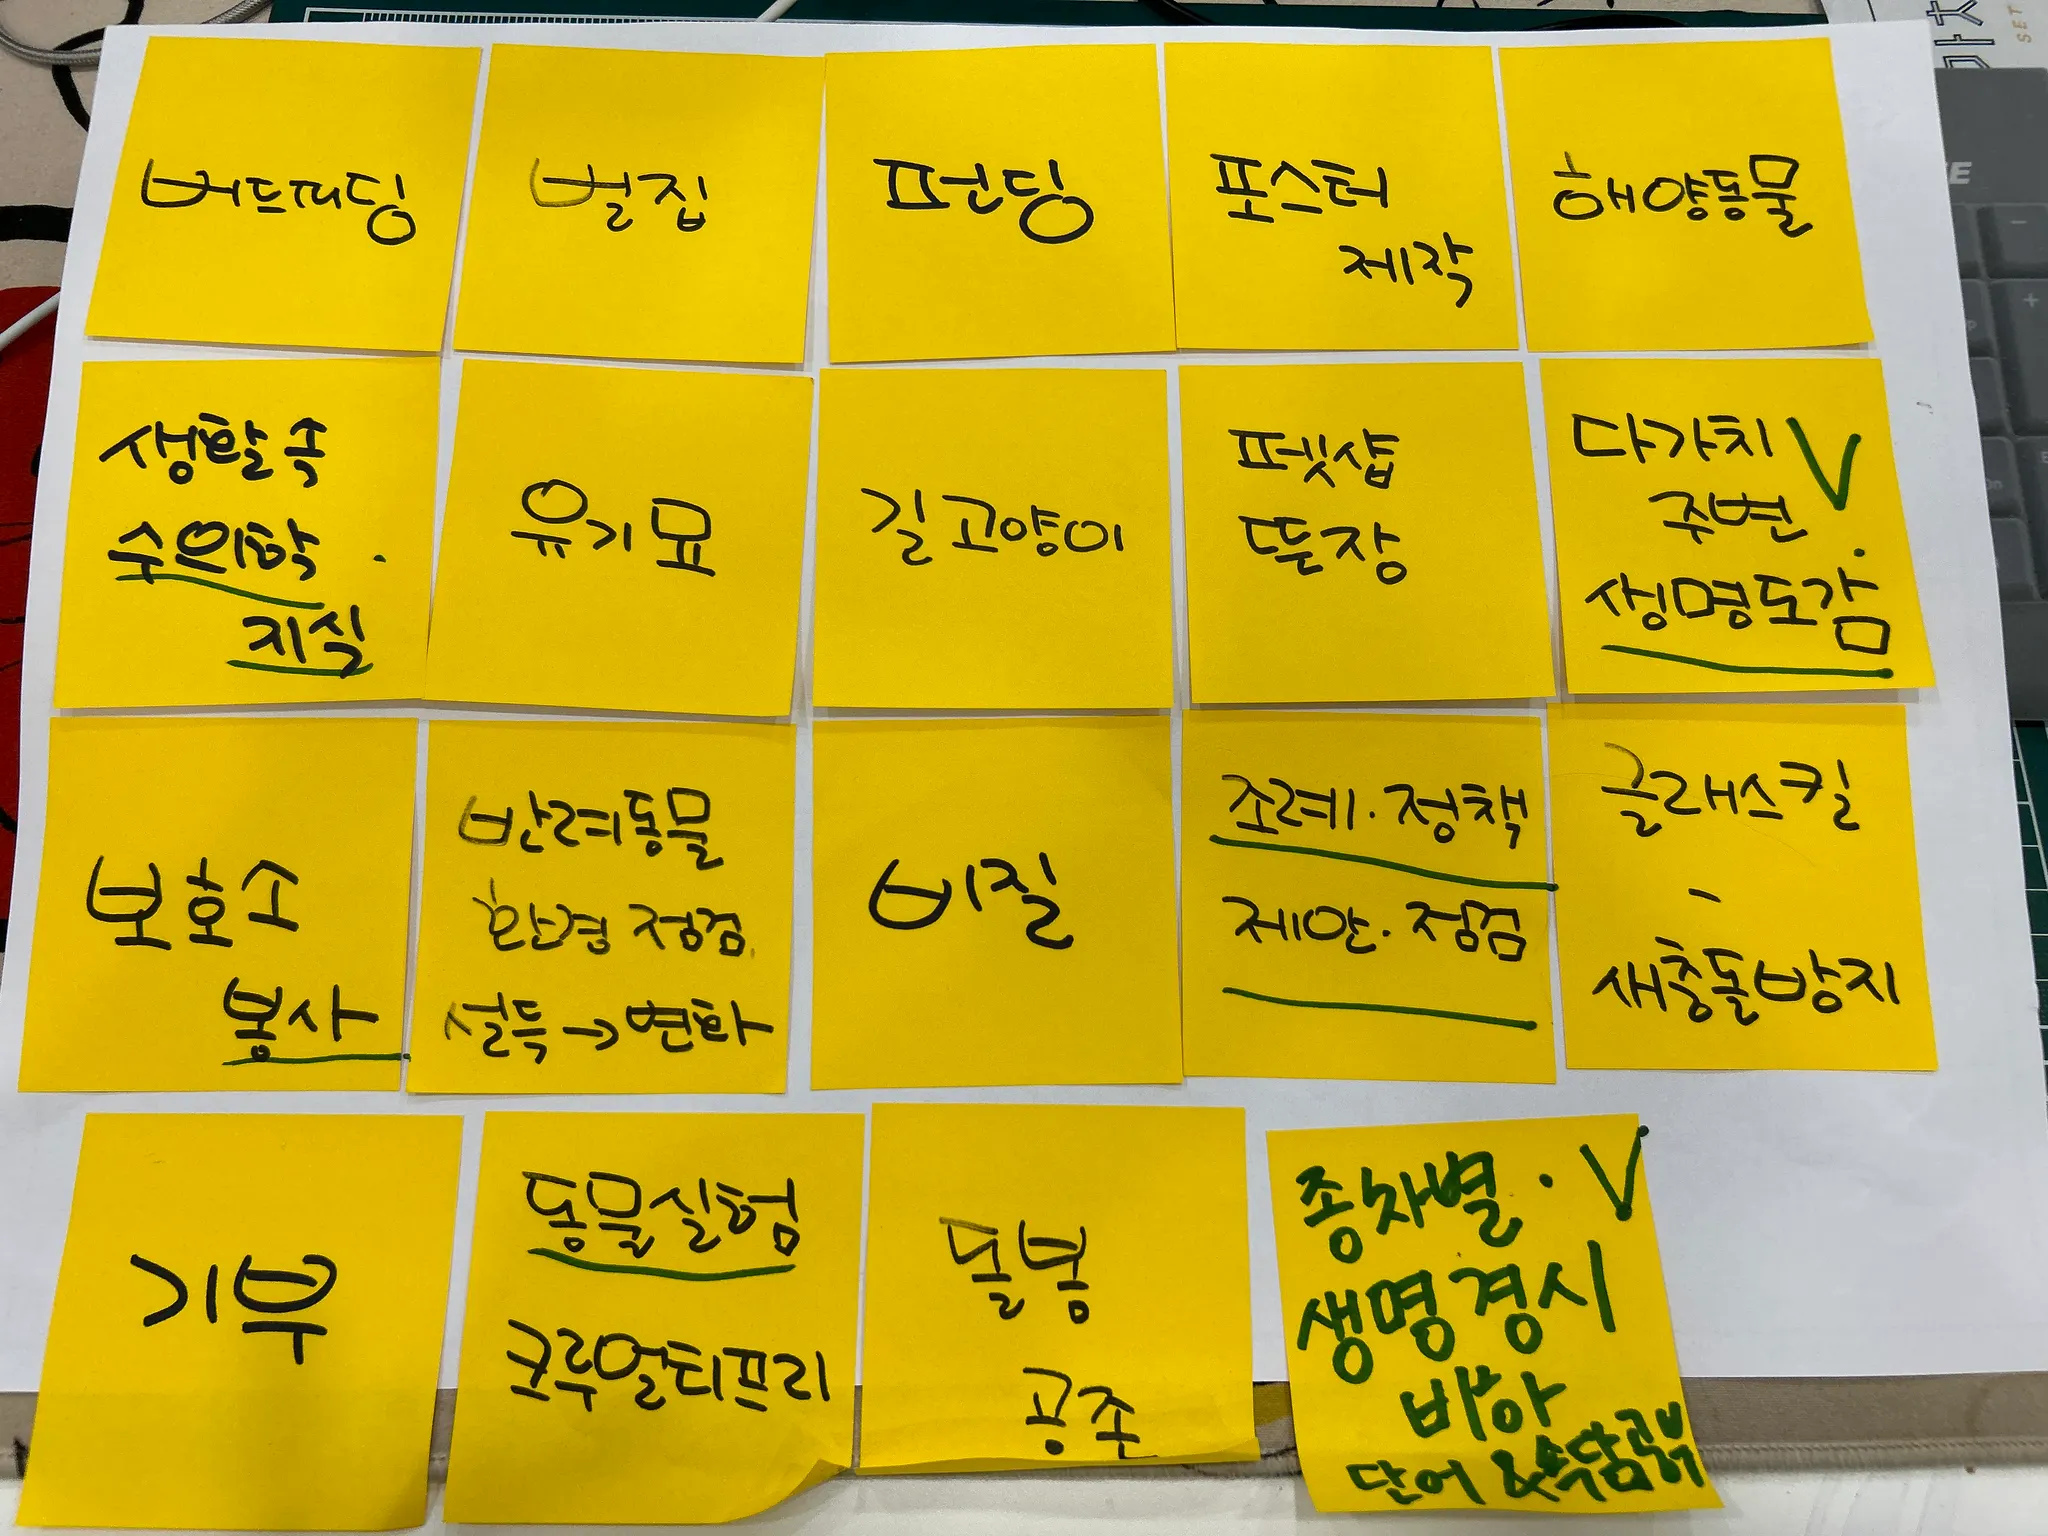 버드피딩
벌집
펀딩
포스터
제작
해양동물
생활 속
수의학
지식
유기묘
길고양이
펫샵
뜬장
다가치 V
주변
생명도감
보호소
봉사
반려동물
환경 정점
설득 → 변화
비질
조례·정책
제안·정검
글래스킬
-
새충돌방지
기부
동물실험
크루얼티프리
돌봄
공존
종차별· V
생명경시
비하
단어 & 속담공부
SET